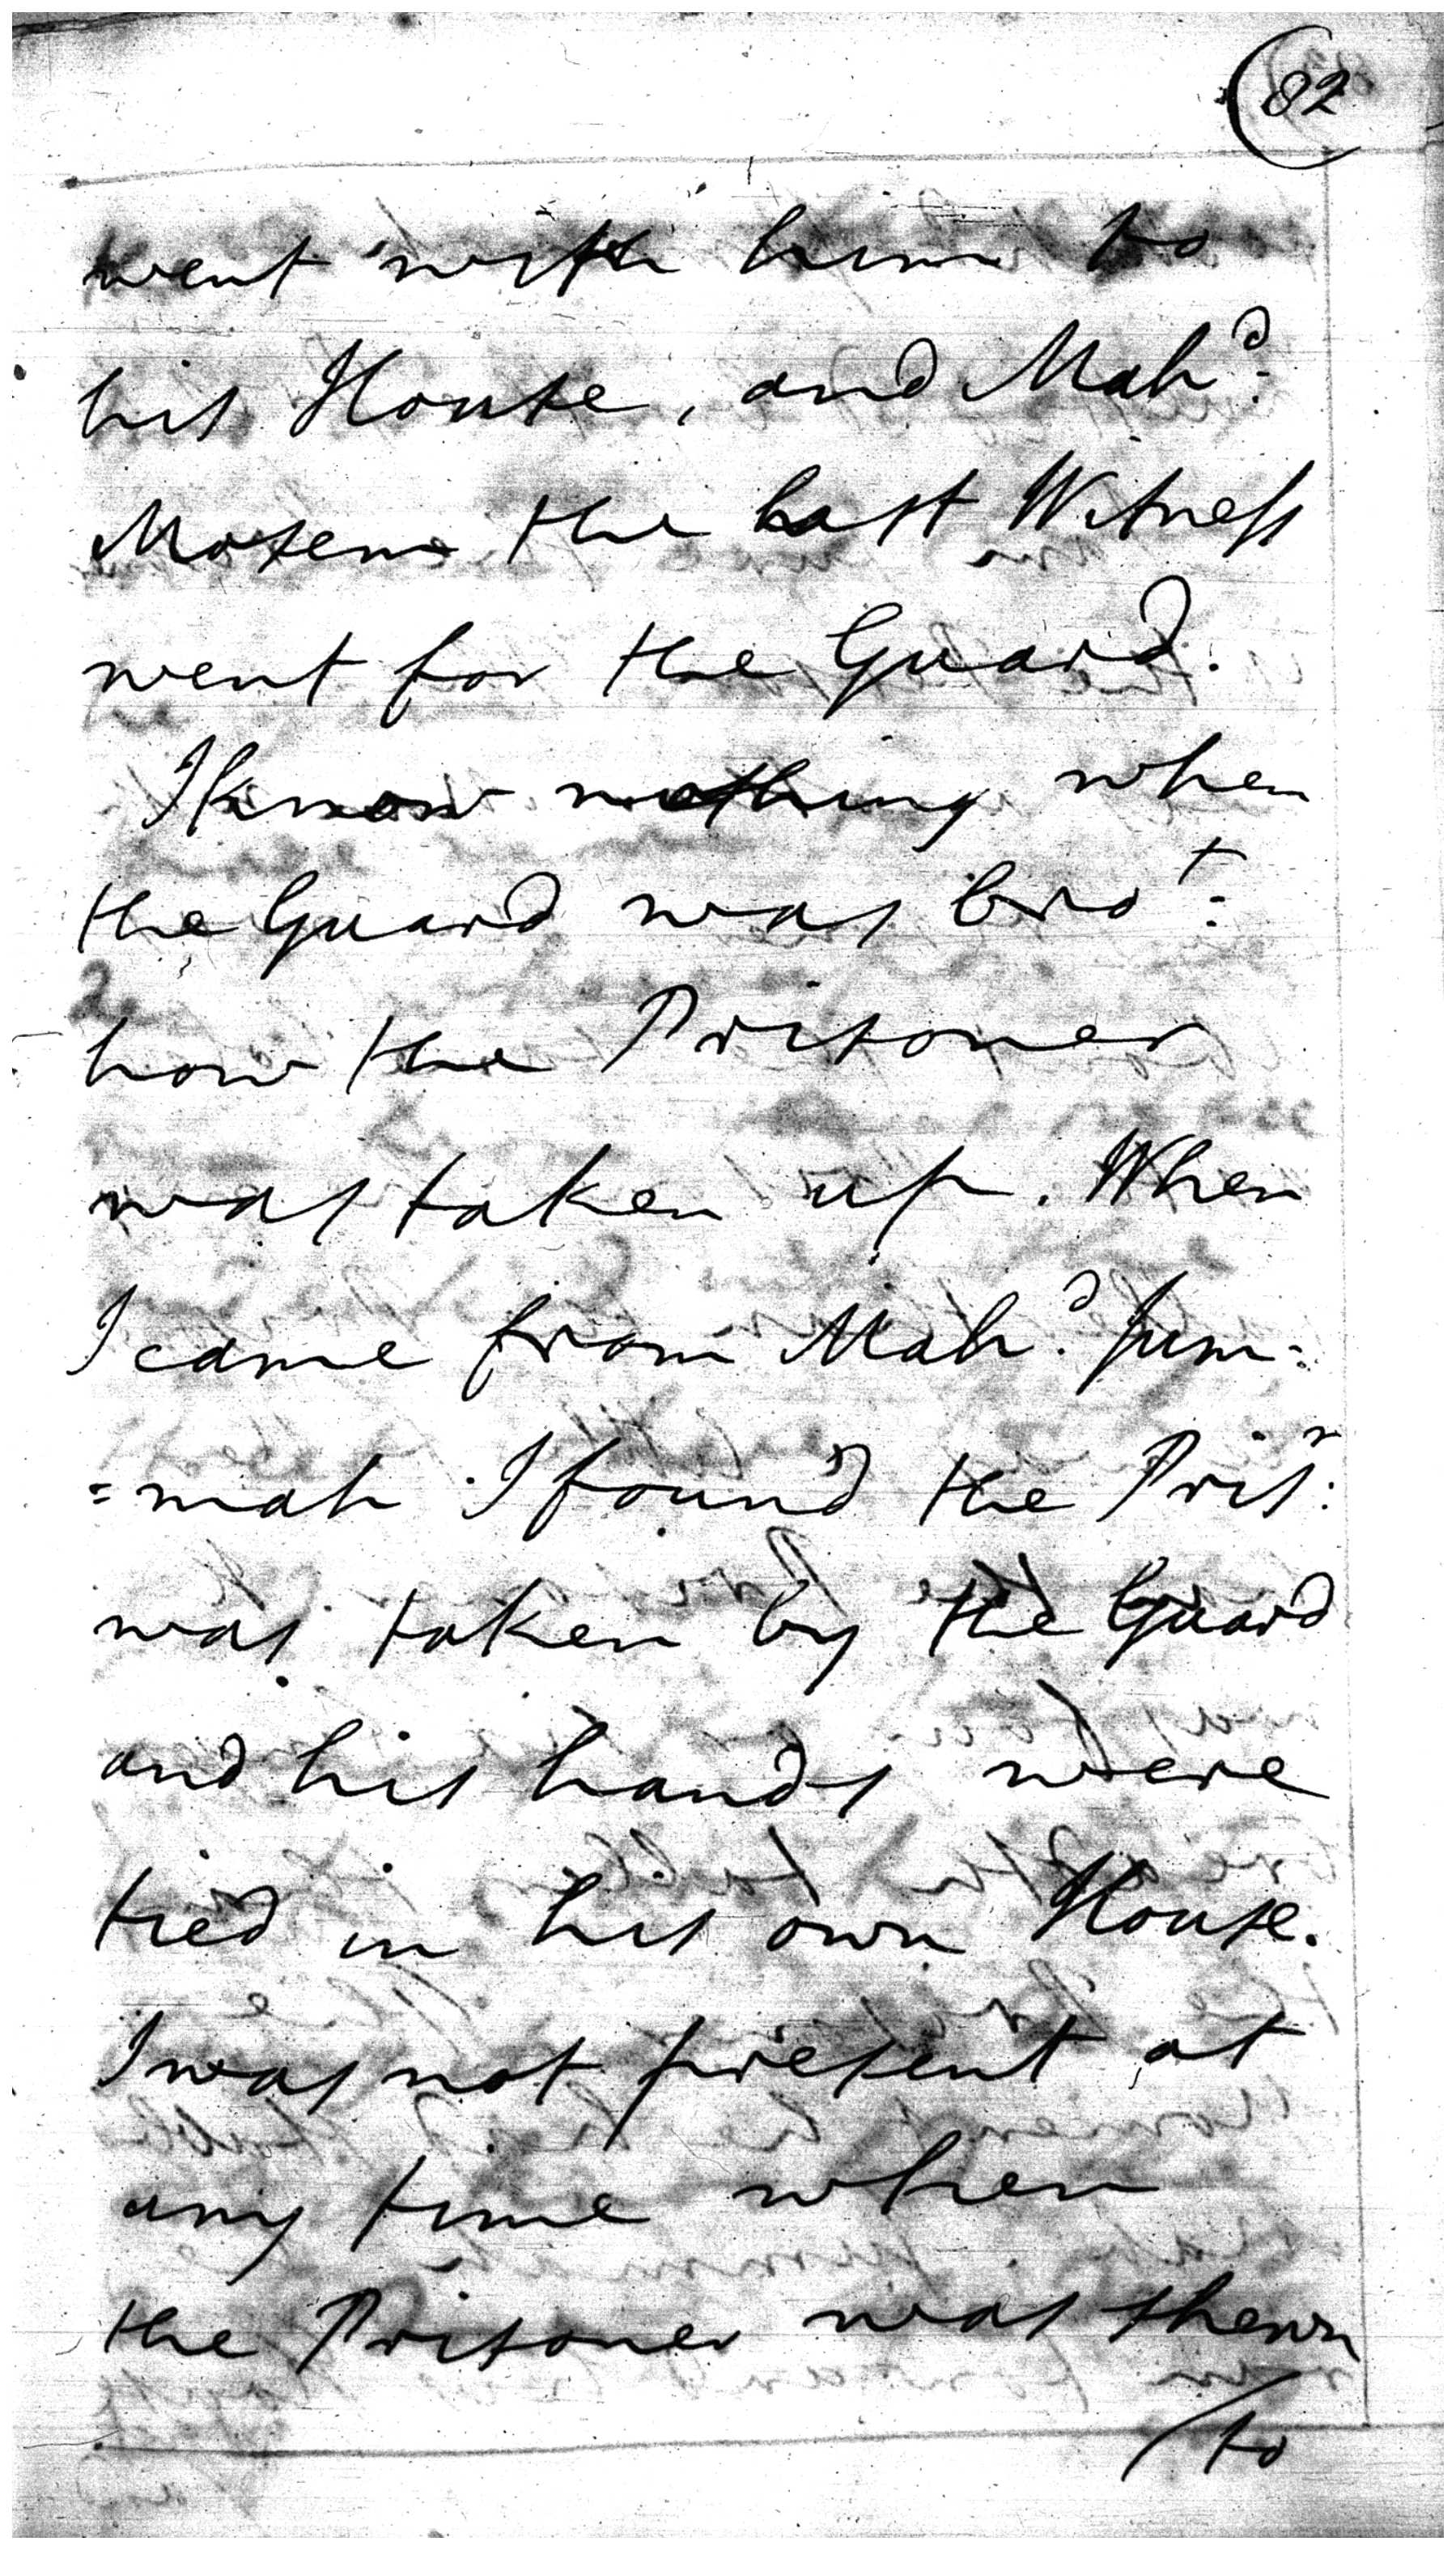 (82
went with him to
his House, and Mahd.
Mosem the last Witness
went for the Guard.
I know nothing when
the Guard was brot:
how the Prisoner
was taken up. When
I came from Mahd. Jum-
=mah I found the Prisr:
was taken by the Guard
and his hands were
tied in his own House.
I was not present at
any time when
the Prisoner was shewn
/to